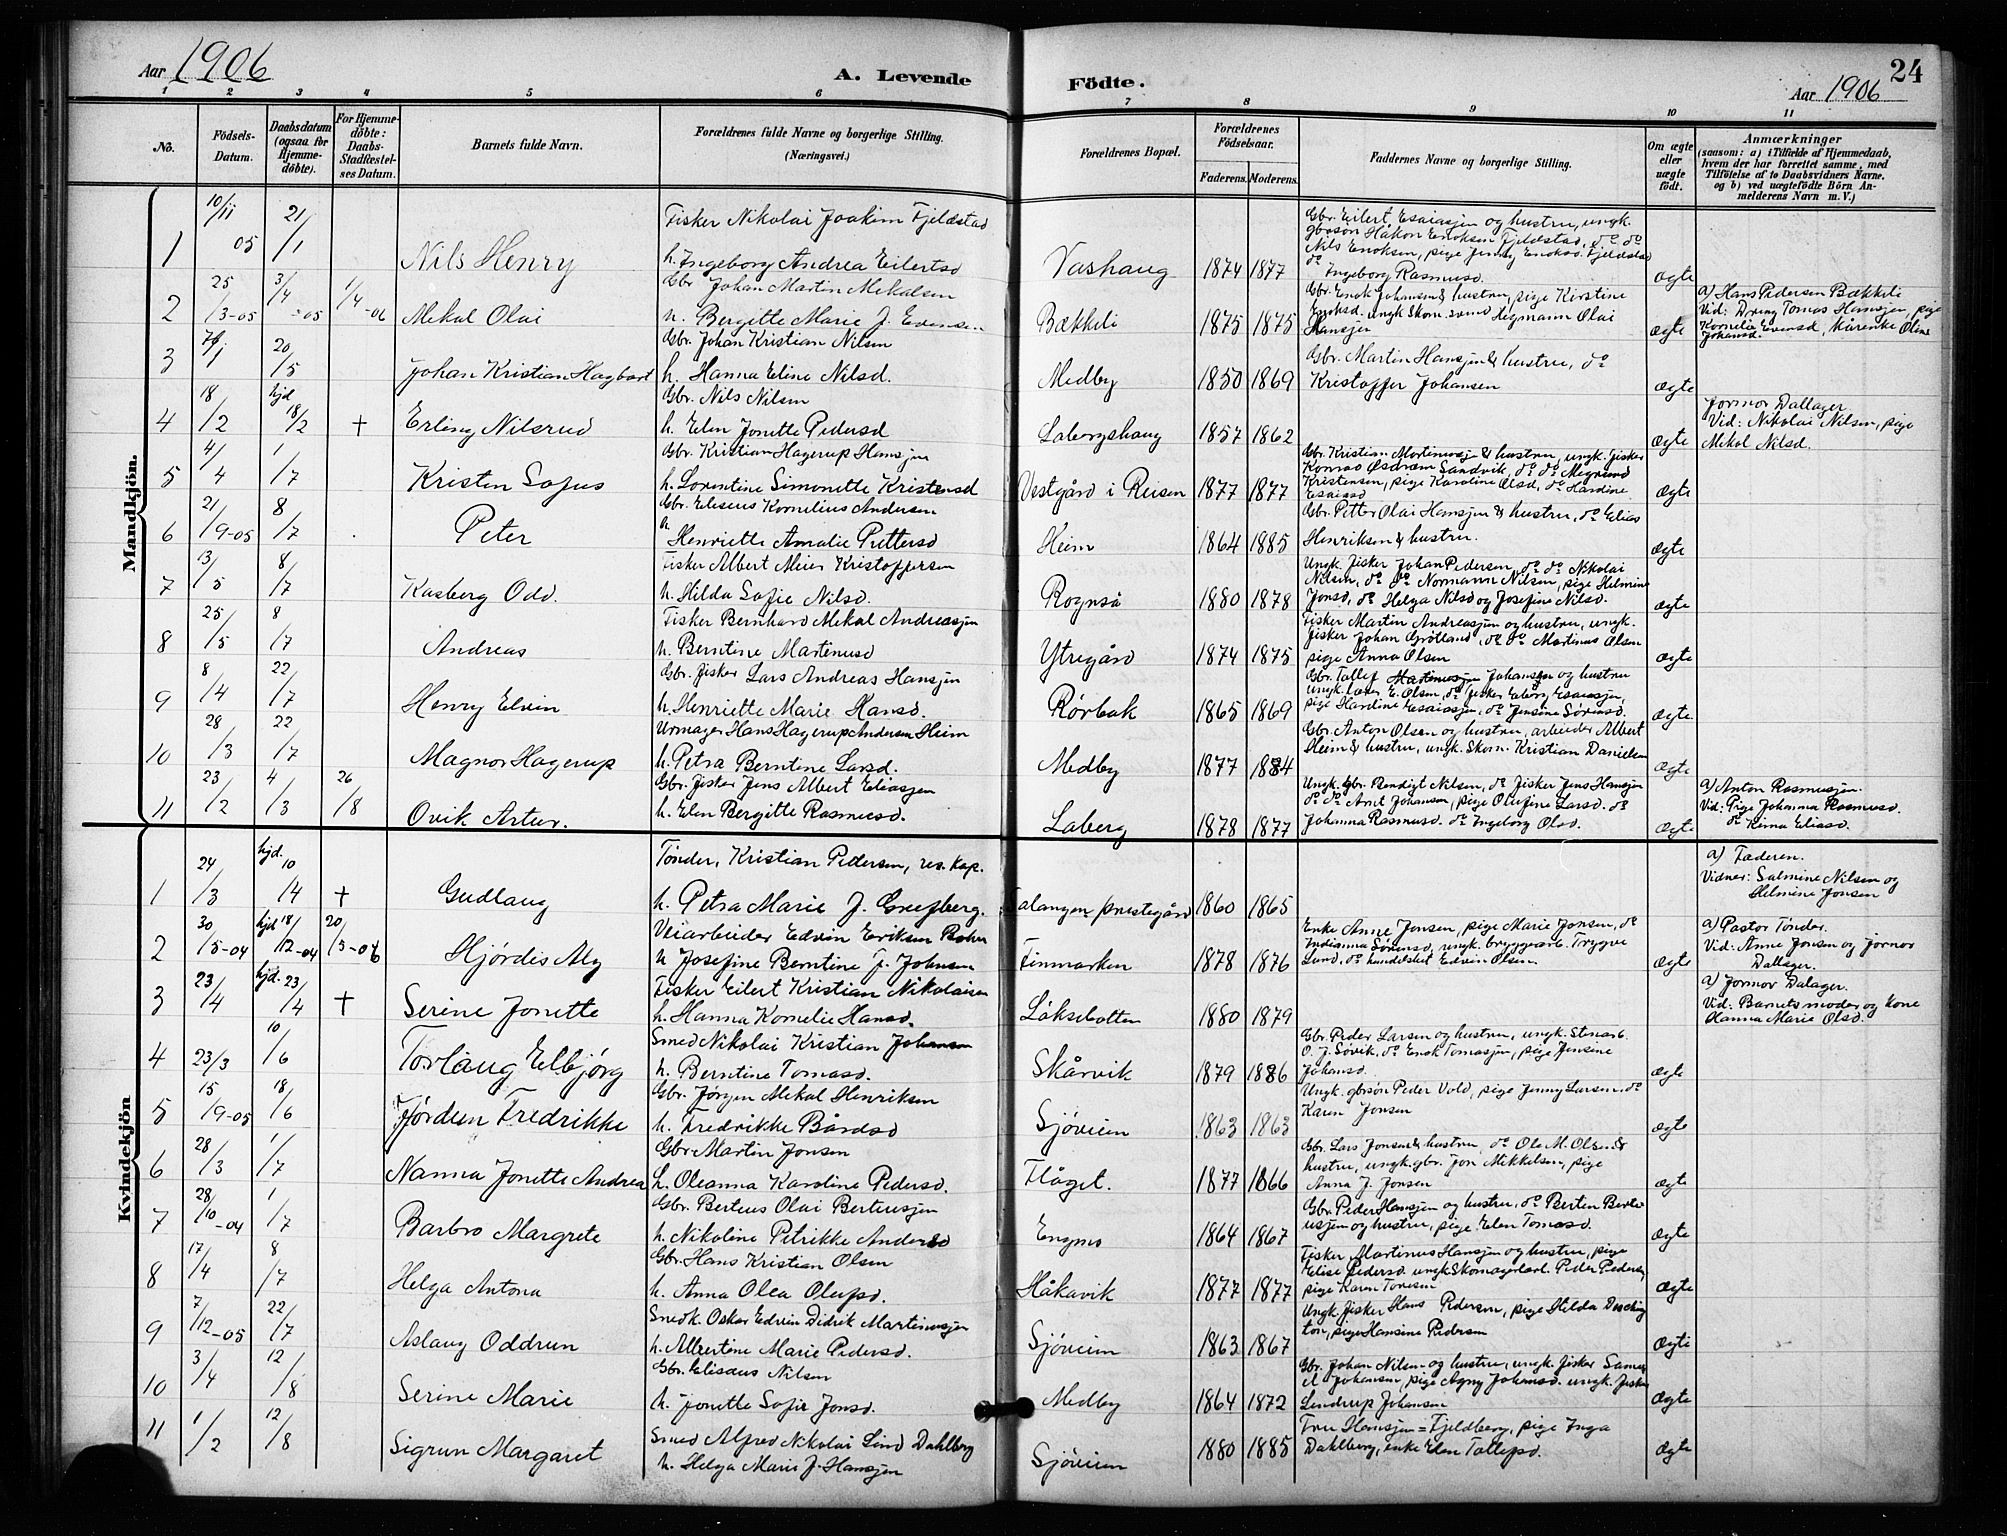 Aar 1906
A. Levende Födte.
Aar 1906
24
1 2 3 4 5 6 7 8 9 10 11
No.
Födsels-Datum.
Daabsdatum (ogsaa for Hjemme-döbte).
For Hjemme-döbte: Daabs-Stadfæstel-ses Datum.
Barnets fulde Navn.
Forældrenes fulde Navne og borgerlige Stilling. (Næringsvei.)
Forældrenes Bopæl.
Forældrenes Födselsaar. Faderens. Moderens.
Faddernes Navne og borgerlige Stilling.
Om ægte eller uægte födt.
Anmærkninger (saasom: a) i Tilfælde af Hjemmedaab, hvem der har forrettet samme, med Tilföielse af to Daabsvidners Navne, og b) ved uægtefödte Börn An-melderens Navn m. V.)
Mandkjön.
1 10/11 05 21/1 Nils Henry
Fisker Nikolai Joakim Fjeldstad
h. Ingeborg Andrea Eilertsd
Vashaug 1874 1877
Gbr. Eilert Esaiassen og hustru, ungk.
gbrsøn Håkon Enoksen Fjeldstad, do do
Nils Enoksen, pige Jenny Enoksd. Fjeldstad
do Ingeborg Rasmusd.
ægte
2 25/3-05 3/4-05 1/4-06 Mekal Olai
Gbr Johan Martin Mekalsen
h. Bergitte Marie J. Evensen
Bækkeli 1875 1875
Gbr. Enok Johansen & hustru, pige Kirstine
Enoksd. ungk Skom. svend Hegmann Olai
Hansen
ægte
a) Hans Pedersen Bækkeli
Vid: Dreng Tomas Hansjen, pige
Kornelia Evensd, kårenke Oline
Johansd.
3 /1 20/5 Johan Kristian Hagbart
Gbr. Johan Kristian Nilsen
h. Hanna Eline Nilsd.
Medby 1850 1869
Gbr. Martin Hansjen & hustru, do
Kristoffer Johansen
ægte
4 18/2 hjd 18/2 + Erling Nilsrud
Gbr. Nils Nilsen
h. Elen Jonette Pedersd
Labergshaug 1857 1862
ægte
Jormor Dallager
Vid: Nikolai Nilsen, pige
Mekal Nilsd.
5 4/4 1/7 Kristen Sofus
Gbr. Kristian Hagerup Hansjen
h. Lorentine Simonette Kristensd
Vestgård i Reisen 1877 1877
Gbr. Kristian Mortensjen & hustru, ungk. fisker
Konrad Sandvik, do do
Kristensen, pige Karoline Olsd, do Hardine
Esaiasd
ægte
6 21/9-05 8/7 Peter
Gbr. Eliseus Kornelius Andersen
h Henriette Amalie Pettersd
Heim 1864 1885
Gbr. Petter Olai Hansjen & hustru, do Elias
Henriksen & hustru.
ægte
7 13/5 8/7 Kasberg Odd.
Fisker Albert Meier Kristoffersen
h. Hilda Sofie Nilsd.
Rognså 1880 1878
Ungk. fisker Johan Pedersen, do do Nikolai
Nilsen, do do Normann Nilsen, pige Helmine
Jonsd, do Helga Nilsd og Josefine Nilsd.
ægte
8 25/5 8/7 Andreas
Fisker Bernhard Mekal Andreassen
h. Berntine Martinusd
Ytregård 1874 1875
Fisker Martin Andreassen og hustru, ungk.
fisker Johan Grøtland, do do Martinus Olsen
pige Anna Olsen
ægte
9 8/4 22/7 Henry Elvin
Gbr. fisker Lars Andreas Hansjen
h. Henriette Marie Hansd.
Rørbak 1865 1869
Gbr. Tollef Johansen og hustru
ungk. E. Olsen, do fisker Eberg Esaiassen,
pige Hardine Esaiassen, do Jensine Sørensd.
ægte
10 28/3 22/7 Magnor Hagerup
Urmager Hans Hagerup Andersen Heim
h. Petra Berntine Larsd.
Medby 1877 1884
Gbr. Anton Olsen og hustru, arbeider Albert
Heim & hustru, ungk. Skom. Kristian Danielsen
ægte
11 23/2 4/3 26/8 Ovik Artur.
Gbr. fisker Jens Albert Eliassen
h. Elen Bergitte Rasmusd.
Laberg 1878 1877
Ungk. Gbr. Bendigt Nilsen, do fisker Jens Hansjen
do do Arnt Johansen, pige Olufine Larsd. do
Johanna Rasmusd. do Ingeborg Olsd.
ægte
a) Anton Rasmussen.
Vid: Pige Johanna Rasmusd.
do Kirna Eliasd.
Kvindekjön
1 24/3 hjd. 10/4 + Gudlaug
Tønder, Kristian Pedersen, res. kap.
h. Petra Marie J. Greifberg.
Talangen prestegård 1860 1865
a) Faderen.
Vidner: Salmine Nilsen og
Helmine Jonsen
2 30/5-04 hjd 18/12-04 20/5-06 Hjørdis Aly
Veiarbeider Edvin Eriksen Bohn
h Josefine Berntine f. Johnsen
Finmarken 1878 1876
Enke Anne Jonsen, pige Marie Jonsen, do
Indianna Sørensd, ungk. bryggearb. Trygve
Lund, do Edvin Olsen.
ægte
a) Pastor Tønder.
Vid: Anne Jonsen og Jormor
Dallager.
3 23/4 hjd. 23/4 + Serine Jonette
Fisker Eilert Kristian Nikolaisen
h. Hanna Kornelie Hansd.
Løksebotten 1880 1879
a) Jormor Dalager.
Vid: Barnets moder og kone
Hanna Marie Olsd.
4 23/3 10/6 Torlaug Elbjørg
Smed Nikolai Kristian Johansen
h. Berntine Tomasd.
Skårvik 1879 1886
Gbr. Peder Larsen og hustru, ungk.
O. J. Søvik, do Enok Tomassen, pige Jensine
Johansd.
ægte
5 15/9-05 18/6 Fjórdun Fredrikke
Gbr. Jørgen Mekal Henriksen
h. Fredrikke Bårdsd
Sjøveien 1863 1863
Ungk. gbrsøn Peder Vold, pige Jenny Larsen, do
Karen Jonsen
ægte
6 28/3 1/7 Nanna Jonette Andrea
Gbr Martin Jonsen
h. Oleanna Karoline Pedersd.
Flåget. 1877 1866
Gbr. Lars Jonsen & hustru, do Ole M. Olsen &
hustru, ungk. gbr. Jon Mikkelsen, pige
Anna J. Jonsen
ægte
7 28/10-04 1/7 Barbro Margrete
Gbr. Berteus Olai Berteussen
h. Nikoline Petrikke Andersd
Engmo 1864 1867
Gbr. Peder Hansjen og hustru, do Berten Berte
ussen og hustru, pige Elen Tomasd.
ægte
8 17/4 8/7 Helga Antona
Gbr. Hans Kristian Olsen
h. Anna Olea Olufsd.
Håkavik 1877 1877
Fisker Martinus Hansjen og hustru, pige
Elise Pedersd. ungk. Skomagerlærl. Peder Peders,
pige Karen Toresen
ægte
9 7/12-05 22/7 Aslaug Oddrun
Smedk. Oskar Edvin Didrik Martinussen
h. Albertine Marie Pedersd.
Sjøveien 1863 1867
Ungk. fisker Hans Pedersen, pige Hilda Desching
ton, pige Hansine Pedersen
ægte
10 3/4 12/8 Serine Marie
Gbr. Elisæus Nilsen
h. Jonette Sofie Jonsd.
Medby 1864 1872
Gbr. Johan Nilsen og hustru, ungk. fisker Samu
el Johansen, pige Agny Johansd. ungk. fisker
Lindrup Johansen
ægte
11 1/2 12/8 Sigrun Margaret
Smed Alfred Nikolai Lind Dahlberg
h. Helga Marie J. Hansjen
Sjøveien 1880 1885
Fru Hansjen=Fjeldberg, pige Inga
Dahlberg, enke Elen Tollefsd.
ægte